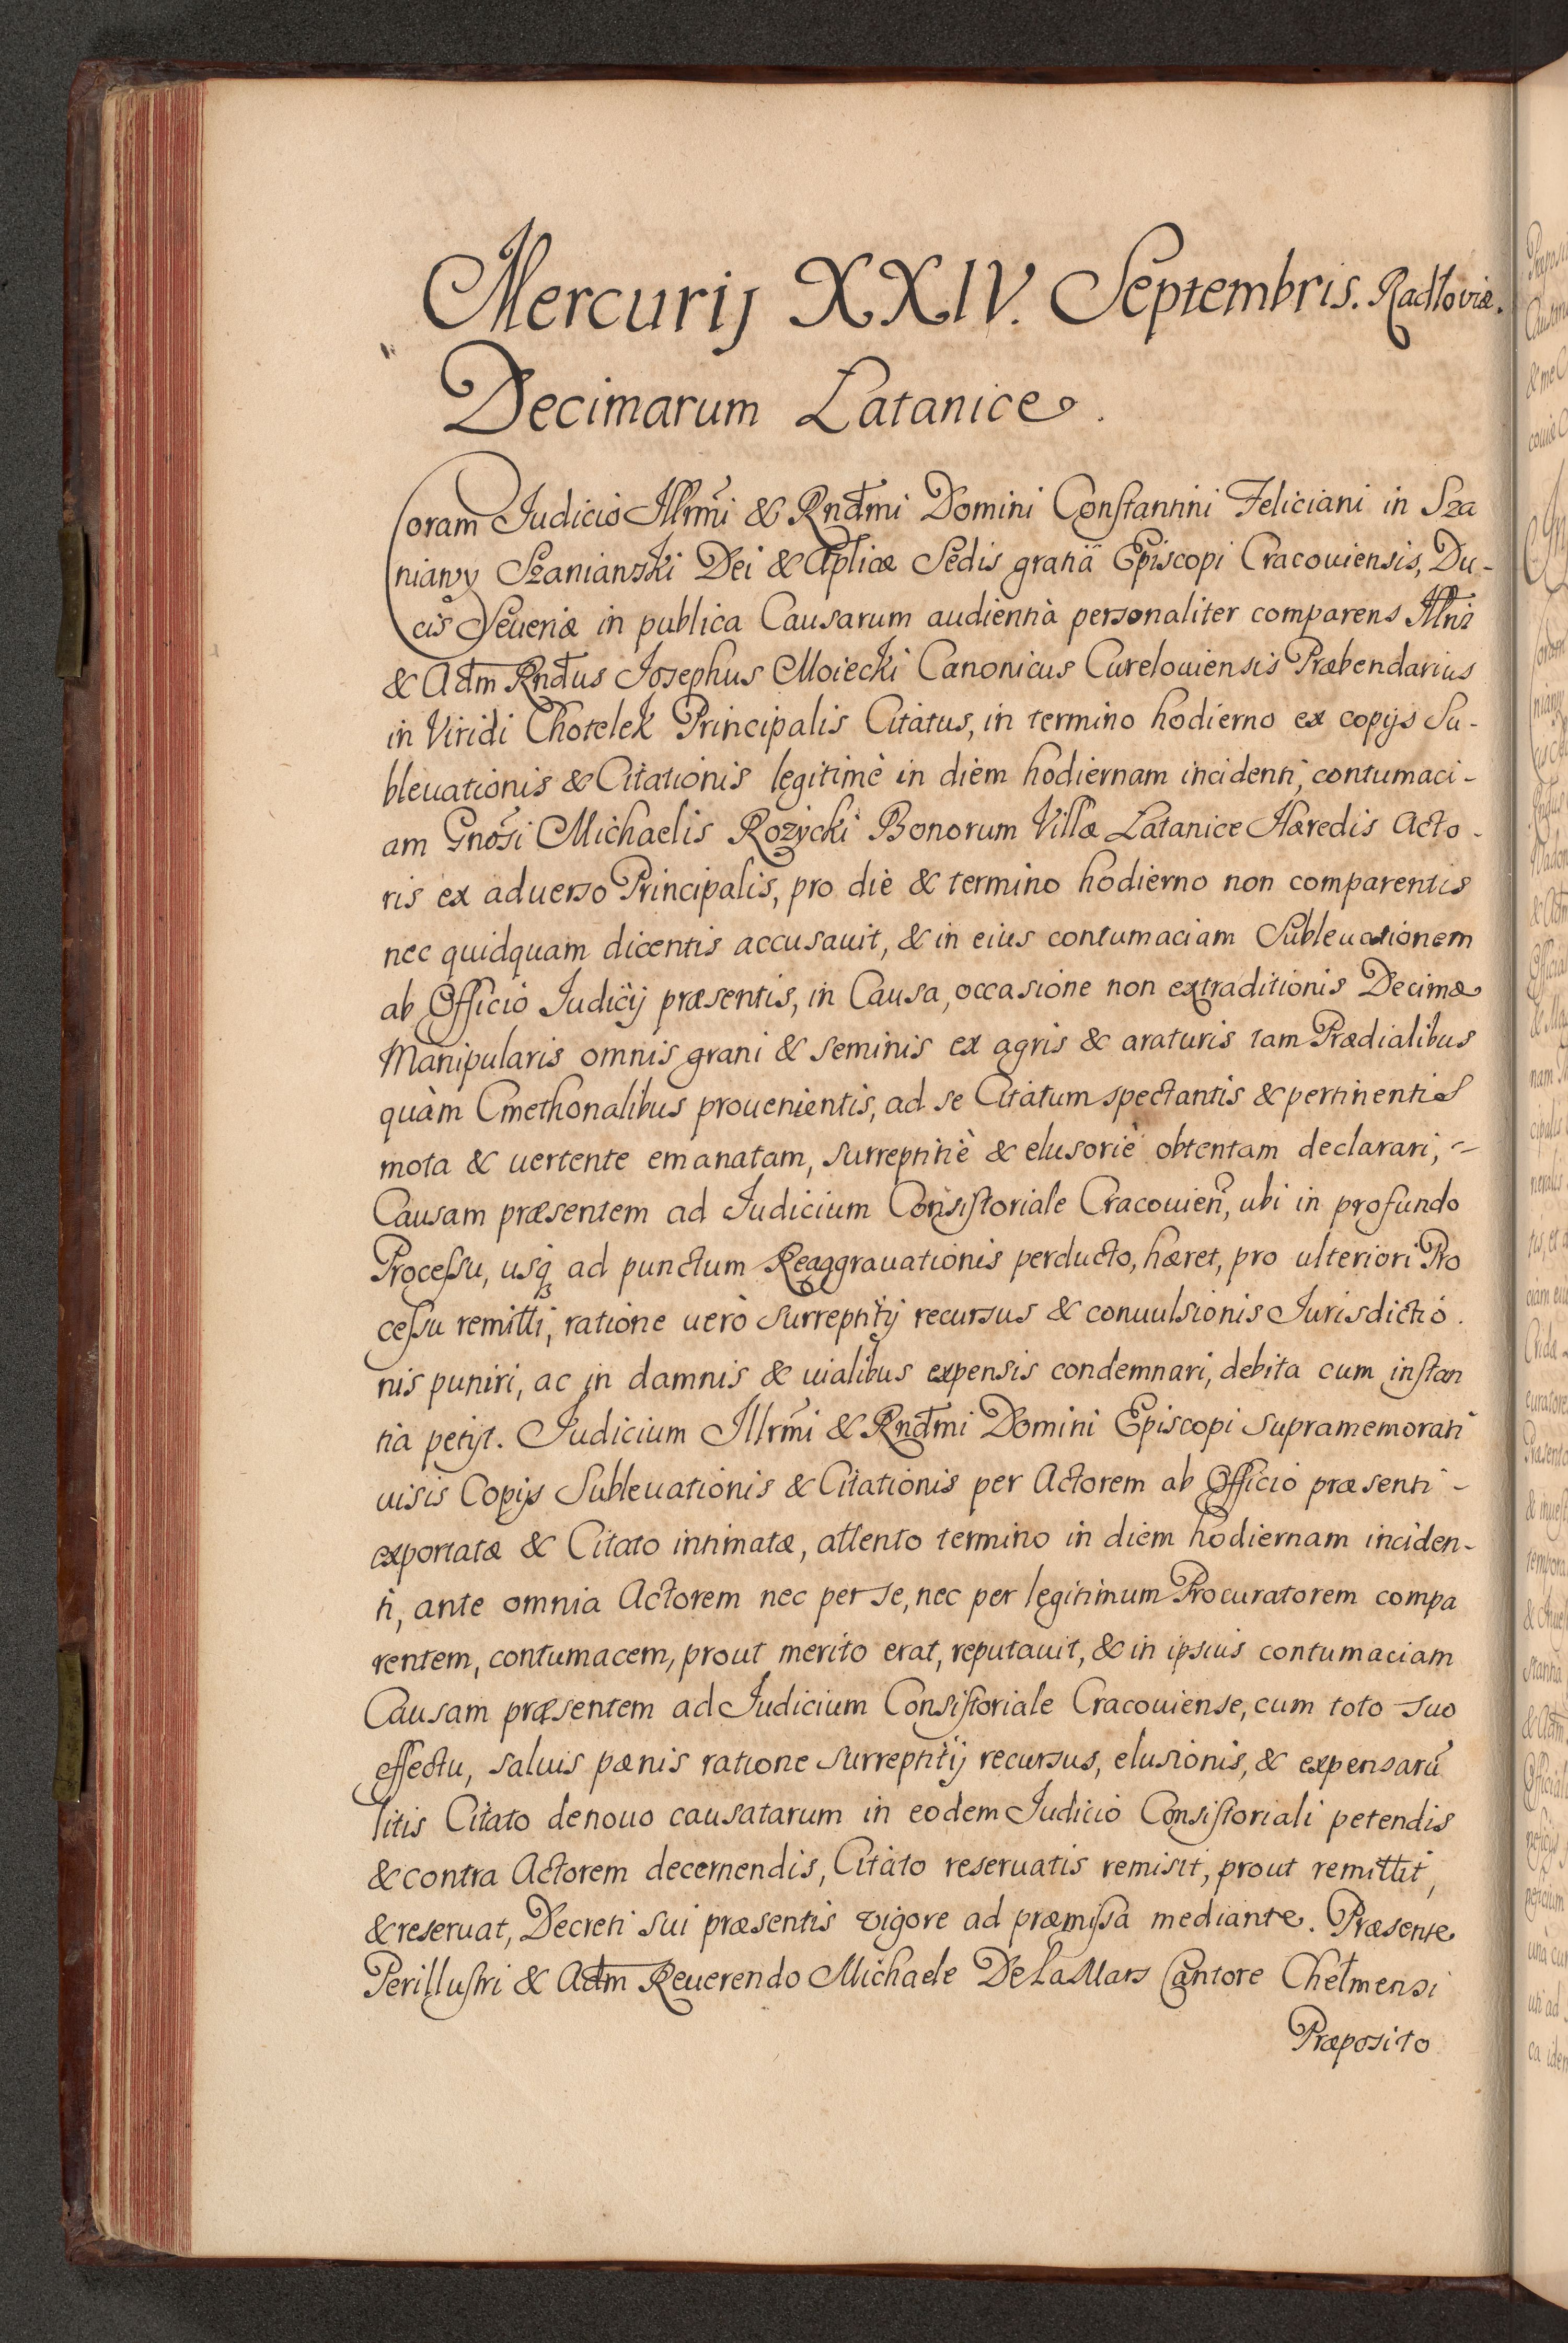 Mercurij XXIV. Septembris. Radłoviæ.
Decimarum Łatanice.
Coram Judicio Illrm̃i & Rndm̃i Domini Constantini Feliciani in Sza
niawy Szaniawski Dei & Aplicæ Sedis gratiâ Episcopi Cracouiensis, Du-
cis Seueriæ in publica Causarum audientià personaliter comparens Illris
& Adm Rndus Josephus Moiecki Canonicus Curelouiensis Præbendarius
in Viridi Chotelek Principalis Citatus, in termino hodierno ex copijs Su-
bleuationis & Citationis legitimè in diem hodiernam incidenti, contumaci-
am Gnosi Michaelis Rozycki Bonorum Villæ Łatanice Hæredis Acto-
ris ex aduerso Principalis, pro die & termino hodierno non comparentis
nec quidquam dicentis accusauit, & in eius contumaciam Subleuationem
ab Officio Judicij præsentis, in Causa, occasione non extraditionis Decimæ
Manipularis omnis grani & seminis ex agris & araturis tam Prædialibus
quàm Cmethonalibus prouenientis, ad se Citatum spectantis & pertinentis
mota & uertente emanatam, surreptitiè & elusoriè obtentam declarari, -
Causam præsentem ad Judicium Consistoriale Cracouien̄, ubi in profundo
Processu, usq3 ad punctum Reaggrauationis perducto, hæret, pro ulteriori Pro
cessu remitti, ratione uerò surreptitij recursus & conuulsionis Jurisdictio.
nis puniri, ac in damnis & uialibus expensis condemnari, debita cum instan
tia petijt. Judicium Illrm̃i & Rndm̃i Domini Episcopi supramemorati
uisis Copijs Subleuationis & Citationis per Actorem ab Officio præsenti -
exportatæ & Citato intimatæ, attento termino in diem hodiernam inciden-
ti, ante omnia Actorem nec per se, nec per legitimum Procuratorem compa
rentem, contumacem, prout merito erat, reputauit, & in ipsius contumaciam
Causam præsentem ad Judicium Consistoriale Cracouiense, cum toto suo
effectu, saluis pœnis ratione surreptitij recursus, elusionis, & expensarū
litis Citato denouo causatarum in eodem Judicio Consistoriali petendis
& contra Actorem decernendis, Citato reseruatis remisit, prout remittit,
& reseruat, Decreti sui præsentis vigore ad præmissa mediante. Præsente
Perillustri & Adm Reuerendo Michaele De La Mars Cantore Chełmensi
Præposito